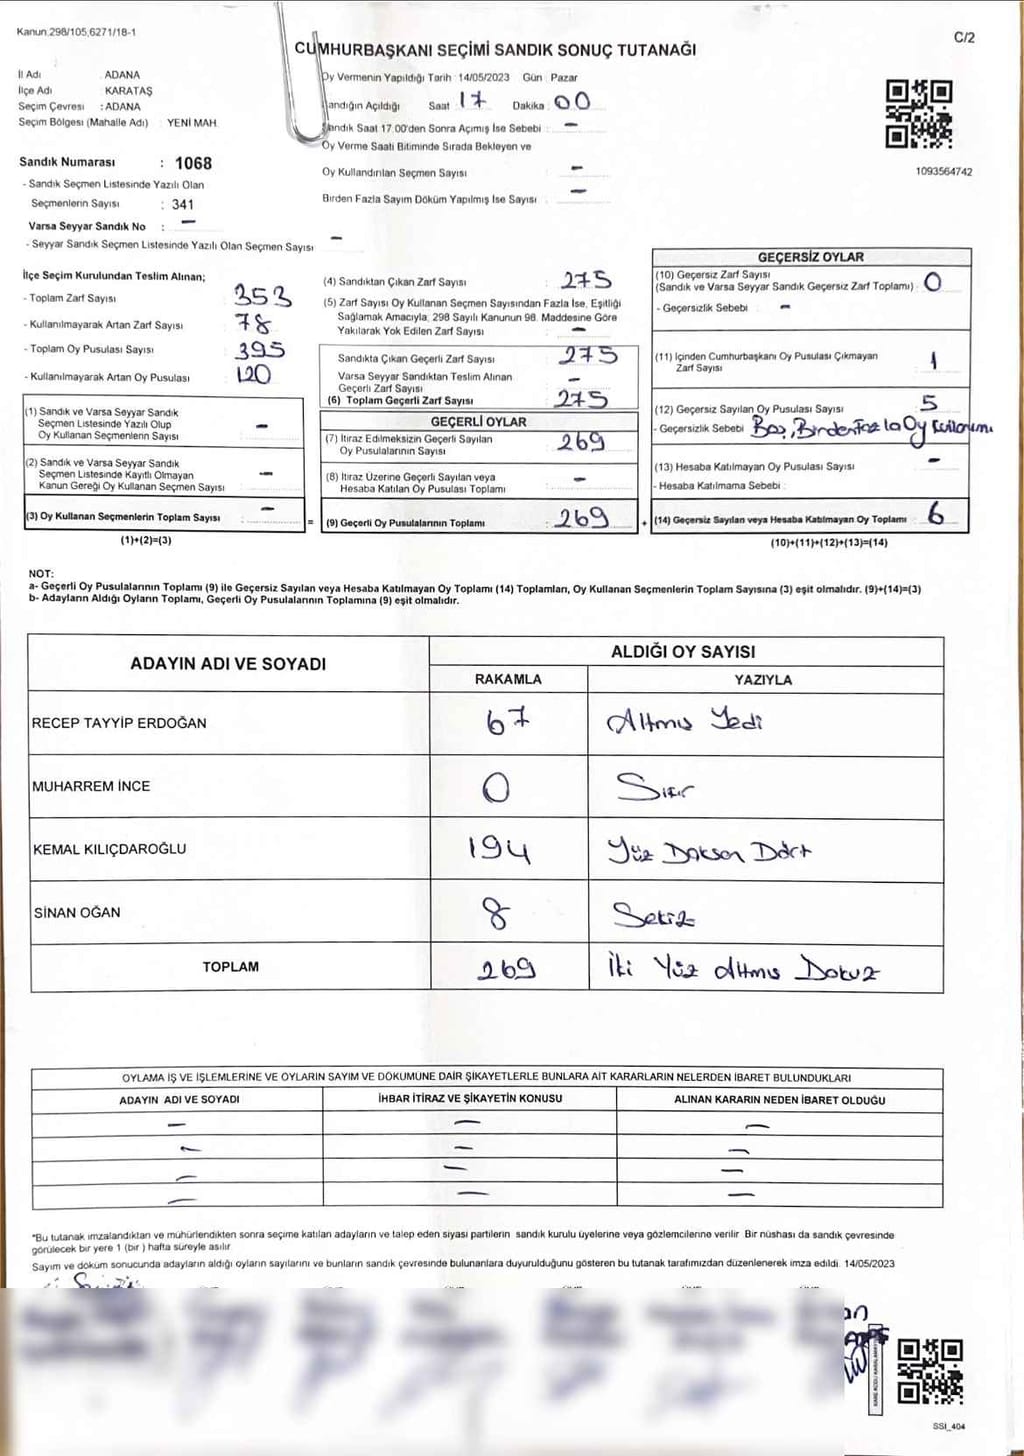 Kanun.298/105,6271/18-1
C/2
CUMHURBAŞKANI SEÇİMİ SANDIK SONUÇ TUTANAĞI
İl Adı : ADANA
İlçe Adı : KARATAŞ
Seçim Çevresi : ADANA
Seçim Bölgesi (Mahalle Adı) : YENİ MAH.
Oy Vermenin Yapıldığı Tarih : 14/05/2023 Gün : Pazar
Sandığın Açıldığı Saat : 17 Dakika : 00
Sandık Saat 17.00'den Sonra Açımış İse Sebebi : -
Oy Verme Saati Bitiminde Sırada Bekleyen ve
Oy Kullandırılan Seçmen Sayısı : -
Birden Fazla Sayım Döküm Yapılmış İse Sayısı : -
1093564742
Sandık Numarası : 1068
- Sandık Seçmen Listesinde Yazılı Olan
Seçmenlerin Sayısı : 341
Varsa Seyyar Sandık No : -
- Seyyar Sandık Seçmen Listesinde Yazılı Olan Seçmen Sayısı : -
İlçe Seçim Kurulundan Teslim Alınan;
- Toplam Zarf Sayısı : 353
- Kullanılmayarak Artan Zarf Sayısı : 78
- Toplam Oy Pusulası Sayısı : 395
- Kullanılmayarak Artan Oy Pusulası : 120
(1) Sandık ve Varsa Seyyar Sandık
Seçmen Listesinde Yazılı Olup
Oy Kullanan Seçmenlerin Sayısı : -
(2) Sandık ve Varsa Seyyar Sandık
Seçmen Listesinde Kayıtlı Olmayan
Kanun Gereği Oy Kullanan Seçmen Sayısı : -
(3) Oy Kullanan Seçmenlerin Toplam Sayısı : -
(1)+(2)=(3)
(4) Sandıktan Çıkan Zarf Sayısı : 275
(5) Zarf Sayısı Oy Kullanan Seçmen Sayısından Fazla İse, Eşitliği
Sağlamak Amacıyla, 298 Sayılı Kanunun 98. Maddesine Göre
Yakılarak Yok Edilen Zarf Sayısı : -
Sandıkta Çıkan Geçerli Zarf Sayısı : 275
Varsa Seyyar Sandıktan Teslim Alınan
Geçerli Zarf Sayısı : -
(6) Toplam Geçerli Zarf Sayısı : 275
GEÇERLİ OYLAR
(7) İtiraz Edilmeksizin Geçerli Sayılan
Oy Pusulalarının Sayısı : 269
(8) İtiraz Üzerine Geçerli Sayılan veya
Hesaba Katılan Oy Pusulası Toplamı : -
= (9) Geçerli Oy Pusulalarının Toplamı : 269
GEÇERSİZ OYLAR
(10) Geçersiz Zarf Sayısı
(Sandık ve Varsa Seyyar Sandık Geçersiz Zarf Toplamı) : 0
- Geçersizlik Sebebi : -
(11) İçinden Cumhurbaşkanı Oy Pusulası Çıkmayan
Zarf Sayısı : 1
(12) Geçersiz Sayılan Oy Pusulası Sayısı : 5
- Geçersizlik Sebebi : Boş, Birden Fazla Oy Kullanımı
(13) Hesaba Katılmayan Oy Pusulası Sayısı : -
- Hesaba Katılmama Sebebi :
+ (14) Geçersiz Sayılan veya Hesaba Katılmayan Oy Toplamı : 6
(10)+(11)+(12)+(13)=(14)
NOT:
a- Geçerli Oy Pusulalarının Toplamı (9) ile Geçersiz Sayılan veya Hesaba Katılmayan Oy Toplamı (14) Toplamları, Oy Kullanan Seçmenlerin Toplam Sayısına (3) eşit olmalıdır. (9)+(14)=(3)
b- Adayların Aldığı Oyların Toplamı, Geçerli Oy Pusulalarının Toplamına (9) eşit olmalıdır.
ADAYIN ADI VE SOYADI ALDIĞI OY SAYISI
RAKAMLA YAZIYLA
RECEP TAYYİP ERDOĞAN 67 Altmış Yedi
MUHARREM İNCE 0 Sıfır
KEMAL KILIÇDAROĞLU 194 Yüz Doksan Dört
SİNAN OĞAN 8 Sekiz
TOPLAM 269 İki Yüz Altmış Dokuz
OYLAMA İŞ VE İŞLEMLERİNE VE OYLARIN SAYIM VE DÖKÜMÜNE DAİR ŞİKAYETLERLE BUNLARA AİT KARARLARIN NELERDEN İBARET BULUNDUKLARI
ADAYIN ADI VE SOYADI İHBAR İTİRAZ VE ŞİKAYETİN KONUSU ALINAN KARARIN NEDEN İBARET OLDUĞU
- - -
- - -
- - -
- - -
*Bu tutanak imzalandıktan ve mühürlendikten sonra seçime katılan adayların ve talep eden siyasi partilerin sandık kurulu üyelerine veya gözlemcilerine verilir. Bir nüshası da sandık çevresinde
görülecek bir yere 1 (bir) hafta süreyle asılır.
Sayım ve döküm sonucunda adayların aldığı oyların sayılarını ve bunların sandık çevresinde bulunanlara duyurulduğunu gösteren bu tutanak tarafımızdan düzenlenerek imza edildi. 14/05/2023
SSI_404